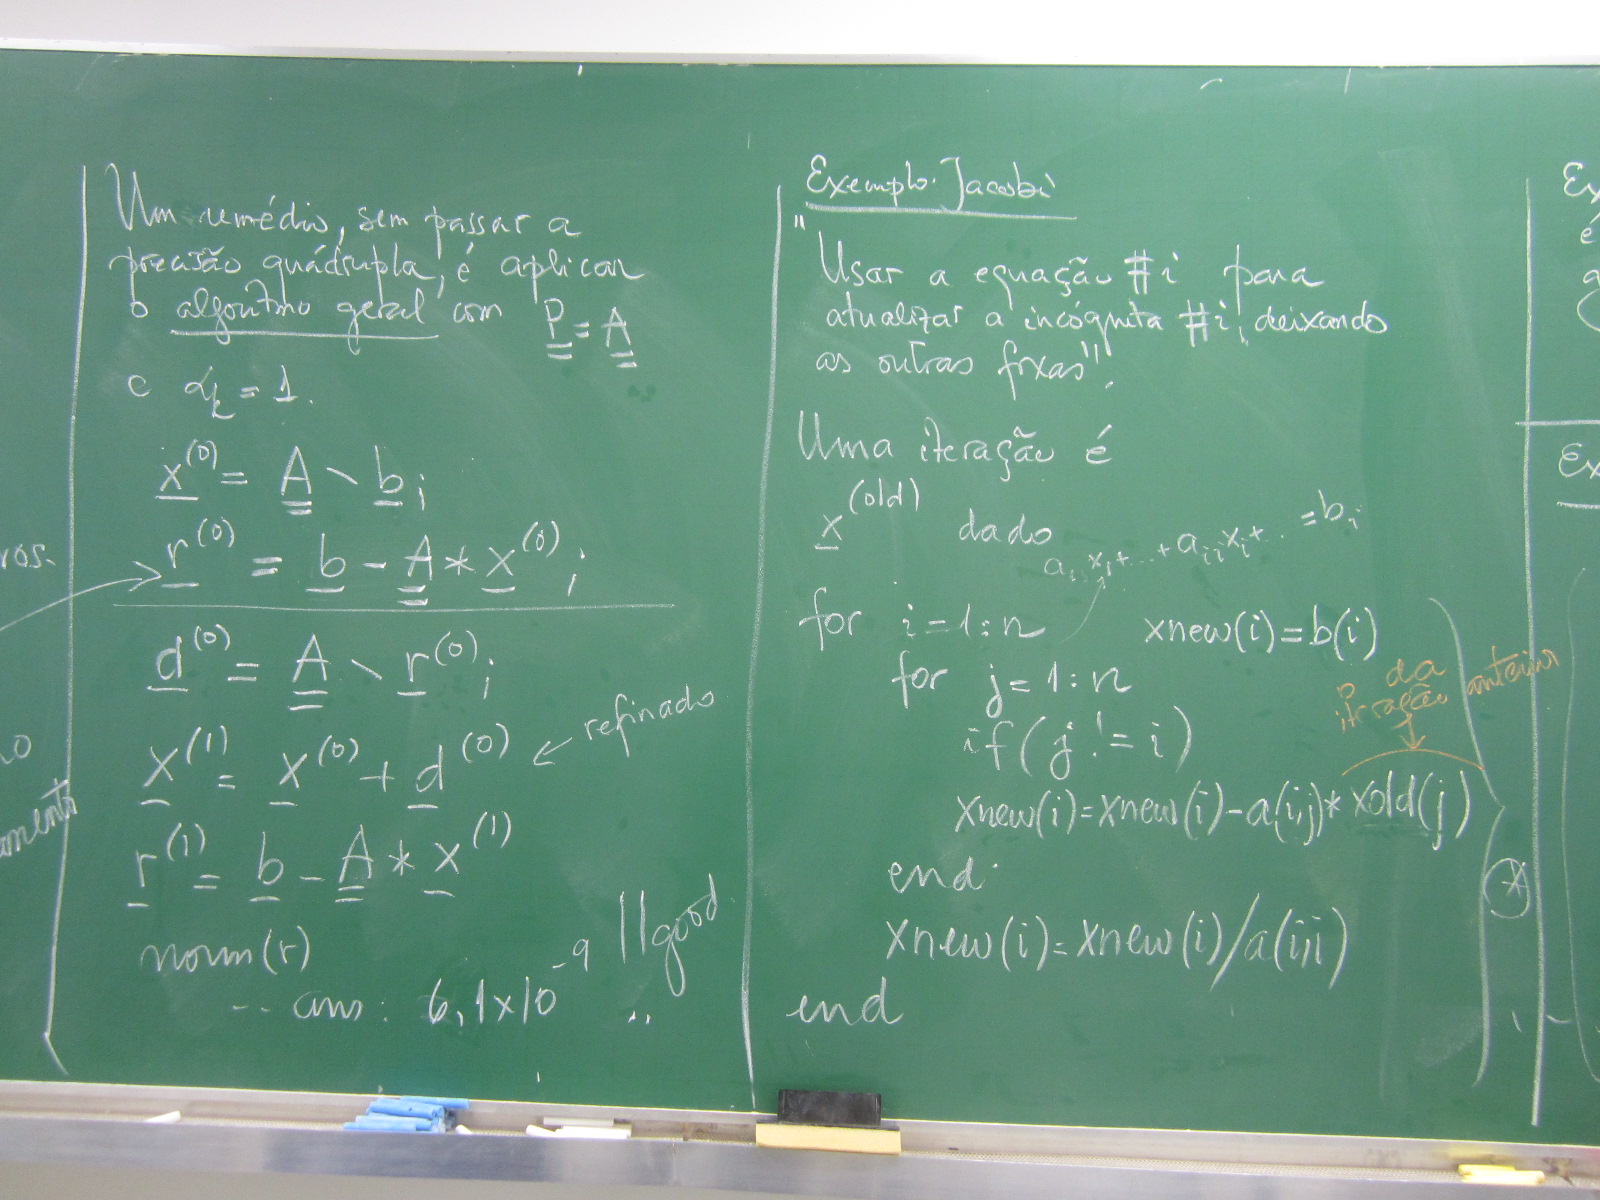 ros.
o
amento
Um remédio, sem passar a
precisão quádrupla, é aplicar
o algoritmo geral com P = A
e αk = 1.
x^(0) = A \ b;
r^(0) = b - A * x^(0);
d^(0) = A \ r^(0);
x^(1) = x^(0) + d^(0) ← refinado
r^(1) = b - A * x^(1)
norm(r)
-- ans: 6,1x10^-9 !! good
Exemplo: Jacobi
"Usar a equação #i para
atualizar a incógnita #i, deixando
as outras fixas".
Uma iteração é
x^(old) dado
a_{i1}x_1+...+a_{ii}x_i+... =b_i
for i=1:n xnew(i)=b(i)
for j=1:n
if(j!=i)
da
iteração anterior
xnew(i)=xnew(i)-a(i,j)*xold(j)
end
xnew(i)=xnew(i)/a(i,i)
end
*
Ex
é
a
Ex